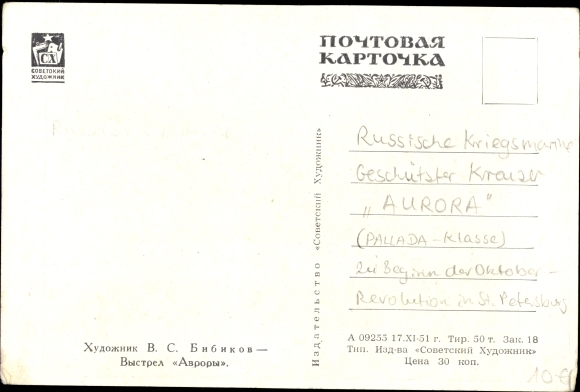 СХ
СОВЕТСКИЙ
ХУДОЖНИК
ПОЧТОВАЯ
КАРТОЧКА
Издательство «Советский Художник»
Russische Kriegsmarine
Geschützter Kreuzer
„AURORA"
(PALLADA-Klasse)
zu Beginn der Oktober-
Revolution in St. Petersburg
Художник В. С. Бибиков —
Выстрел «Авроры».
А 09255 17.XI-51 г. Тир. 50 т. Зак. 18
Тип. Изд-ва «Советский Художник»
Цена 30 коп.